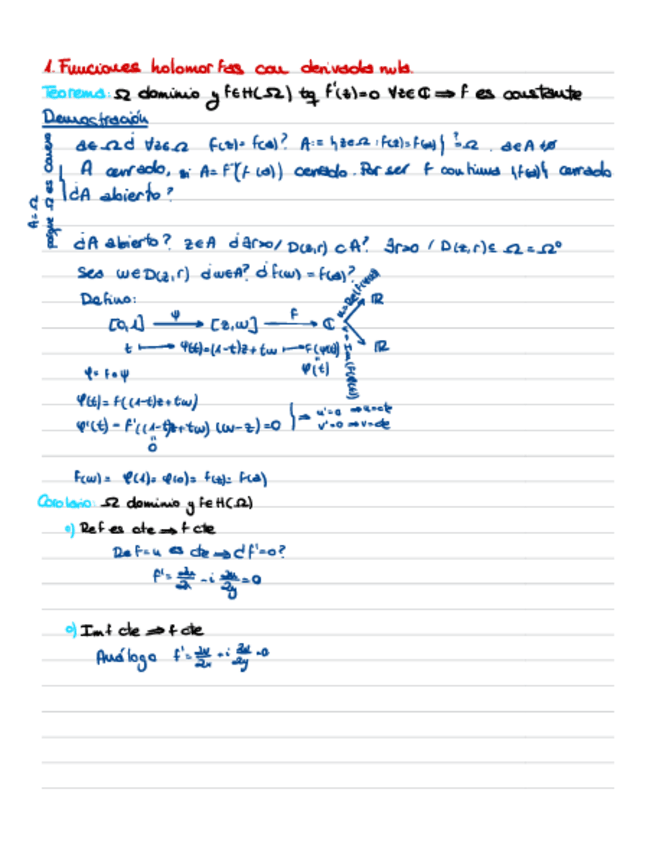 1. Funciones holomorfas con derivada nula.
Teorema: Ω dominio y f∈H(Ω) tq f'(z)=0 ∀z∈ℂ ⇒ f es constante
Demostración
a∈Ω ¿ ∀z∈Ω f(z)=f(a)? A:={z∈Ω : f(z)=f(a)} ?= Ω. a∈A
A cerrado, A=f⁻¹(f(a)) cerrado. Por ser f continua {f(a)} cerrado
¿A abierto?
A=Ω
porque Ω es conexo
¿A abierto? z∈A ¿∃r>0/ D(z,r)⊂A? ∃r>0 / D(z,r)⊆ Ω=Ω°
Sea w∈D(z,r) ¿w∈A? ¿f(w)=f(a)?
Defino:
[0,1] —ψ→ [z,w] —f→ ℂ
u=Re(f(ψ(t))) ℝ
t ↦ ψ(t)=(1-t)z+tw ↦ f(ψ(t))
v=Im(f(ψ(t))) ℝ
φ(t)
φ=f∘ψ
φ(t)=f((1-t)z+tw)
φ'(t)=f'((1-t)z+tw)(w-z)=0 } ⇒ u'=0 ⇒ u=cte
v'=0 ⇒ v=cte
0
f(w)=φ(1)=φ(0)=f(z)=f(a)
Corolario: Ω dominio y f∈H(Ω)
•) Re f es cte ⇒ f cte
Re f=u es cte ⇒ ¿f'=0?
f'=∂u/∂x - i ∂u/∂y=0
•) Im f cte ⇒ f cte
Análogo f'=∂v/∂x + i ∂v/∂y=0